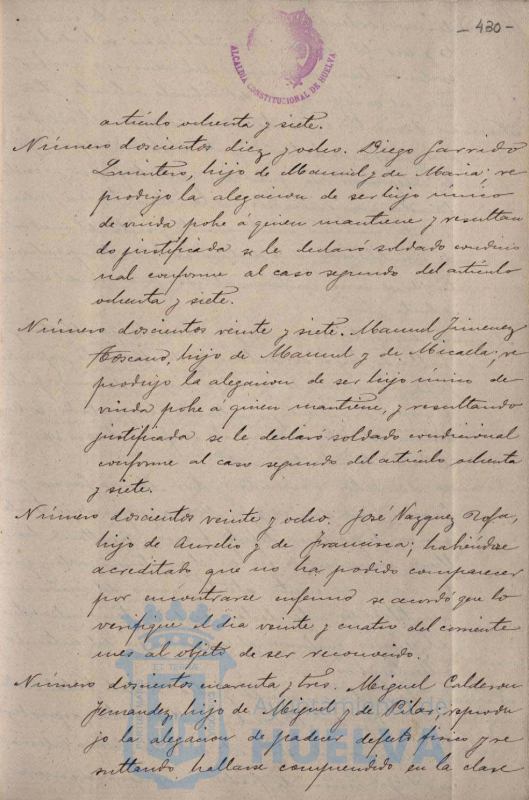 - 430 -
ALCALDIA CONSTITUCIONAL DE HUELVA
artículo ochenta y siete.
Número doscientos diez y ocho. Diego Garrido
Quintero, hijo de Manuel y de Maria; re
produjo la alegacion de ser hijo único
de viuda pobre á quien mantiene y resultan
do justificada se le declaró soldado condicio
nal conforme al caso segundo del artículo
ochenta y siete.
Número doscientos veinte y siete. Manuel Jimenez
Toscano, hijo de Manuel y de Micaela; re
produjo la alegacion de ser hijo único de
viuda pobre á quien mantiene, y resultando
justificada se le declaró soldado condicional
conforme al caso segundo del artículo ochenta
y siete.
Número doscientos veinte y ocho. José Vazquez Rofa,
hijo de Aurelio y de Francisca; habiéndose
acreditado que no ha podido comparecer
por encontrarse enfermo se acordó que lo
verifique el dia veinte y cuatro del corriente
mes al objeto de ser reconocido.
Número doscientos cuarenta y tres. Miguel Calderon
Fernandez, hijo de Miguel y de Pilar; reprodu
jo la alegacion de padecer defecto fisico y re
sultando hallarse comprendido en la clase
ET TERRAE
Ayuntamiento de
HUELVA